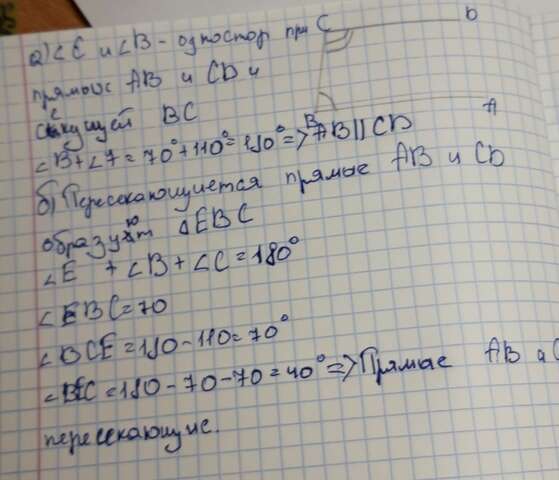 а) ∠C и ∠B - одностор при
прямых AB и CD и
секущей BC
∠B + ∠7 = 70° + 110° = 180° => AB || CD
б) Пересекающиется прямые AB и CD
образуют ΔEBC
∠E + ∠B + ∠C = 180°
∠EBC = 70
∠BCE = 180 - 110 = 70°
∠BEC = 180 - 70 - 70 = 40° => Прямые AB и C
пересекающие.
C D
B A